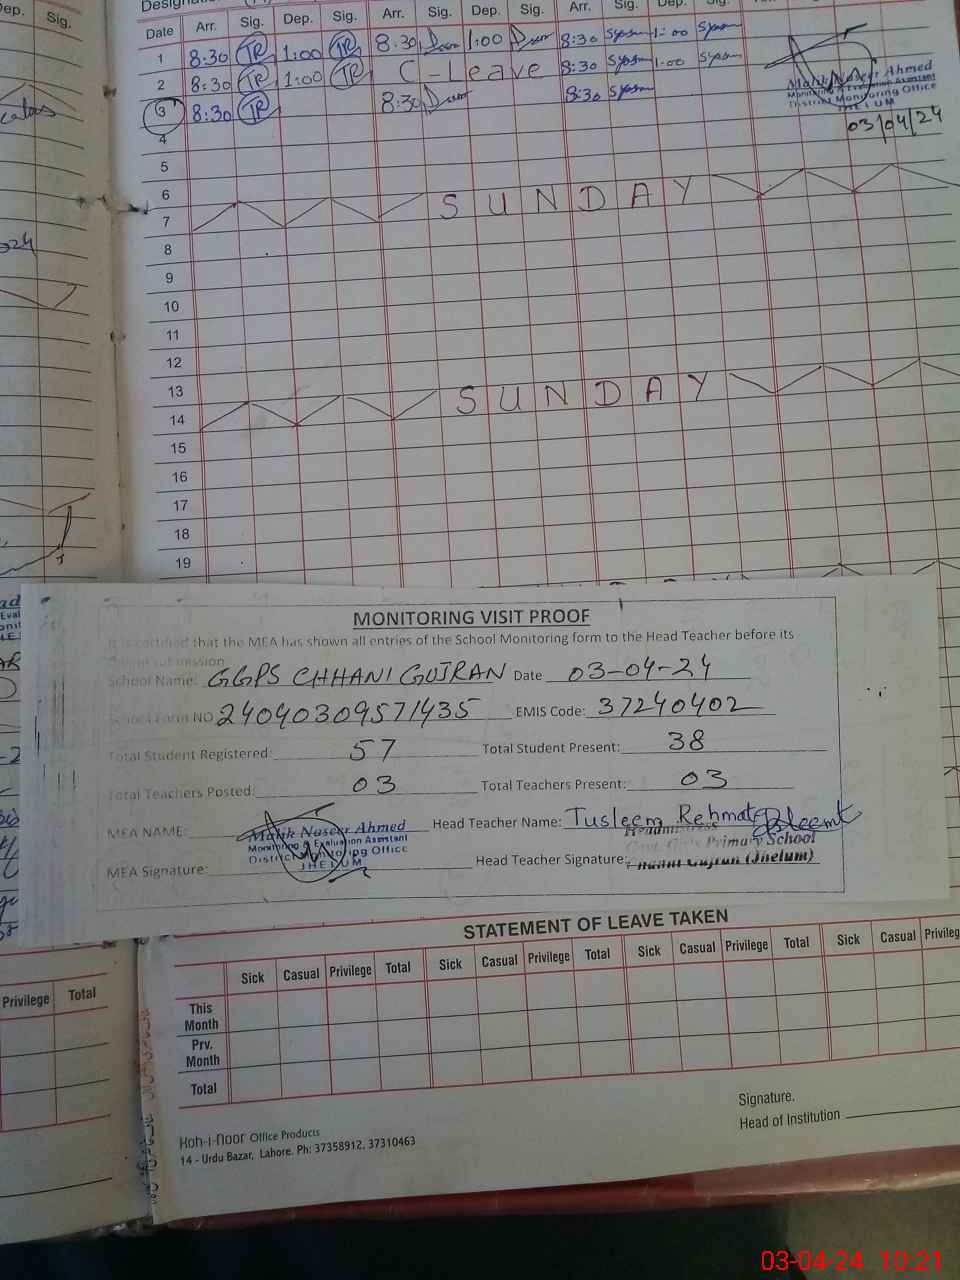 Dep. Sig.
Date Arr. Sig. Dep. Sig. Arr. Sig. Dep. Sig. Arr. Sig. Dep. Sig.
1 8:30 TR 1:00 TR 8:30 1:00 8:30 1:00
2 8:30 TR 1:00 TR C-Leave 8:30 1:00
3 8:30 TR 8:30 8:30
Malik Naseer Ahmed
Monitoring & Evaluation Assistant
District Monitoring Office
JHELUM
03/04/24
4
5
6
7 SUNDAY
8
9
10
11
12
13
14 SUNDAY
15
16
17
18
19
MONITORING VISIT PROOF
It is certified that the MEA has shown all entries of the School Monitoring form to the Head Teacher before its
submission
School Name: GGPS CHHANI GUJRAN Date 03-04-24
School Form NO 24040309571435 EMIS Code: 37240402
Total Student Registered: 57 Total Student Present: 38
Total Teachers Posted: 03 Total Teachers Present: 03
MEA NAME: Malik Naseer Ahmed Head Teacher Name: Tusleem Rehmat
Monitoring & Evaluation Assistant
District Monitoring Office
JHELUM
Headmistress
Govt. Girls Primary School
Chhani Gujran (Jhelum)
MEA Signature: Head Teacher Signature:
STATEMENT OF LEAVE TAKEN
Sick Casual Privilege Total Sick Casual Privilege Total Sick Casual Privilege Total Sick Casual Privileg
Privilege Total
This Month
Prv. Month
Total
Signature.
Head of Institution
Koh-i-noor Office Products
14 - Urdu Bazar, Lahore. Ph: 37358912, 37310463
03-04-24 10:21